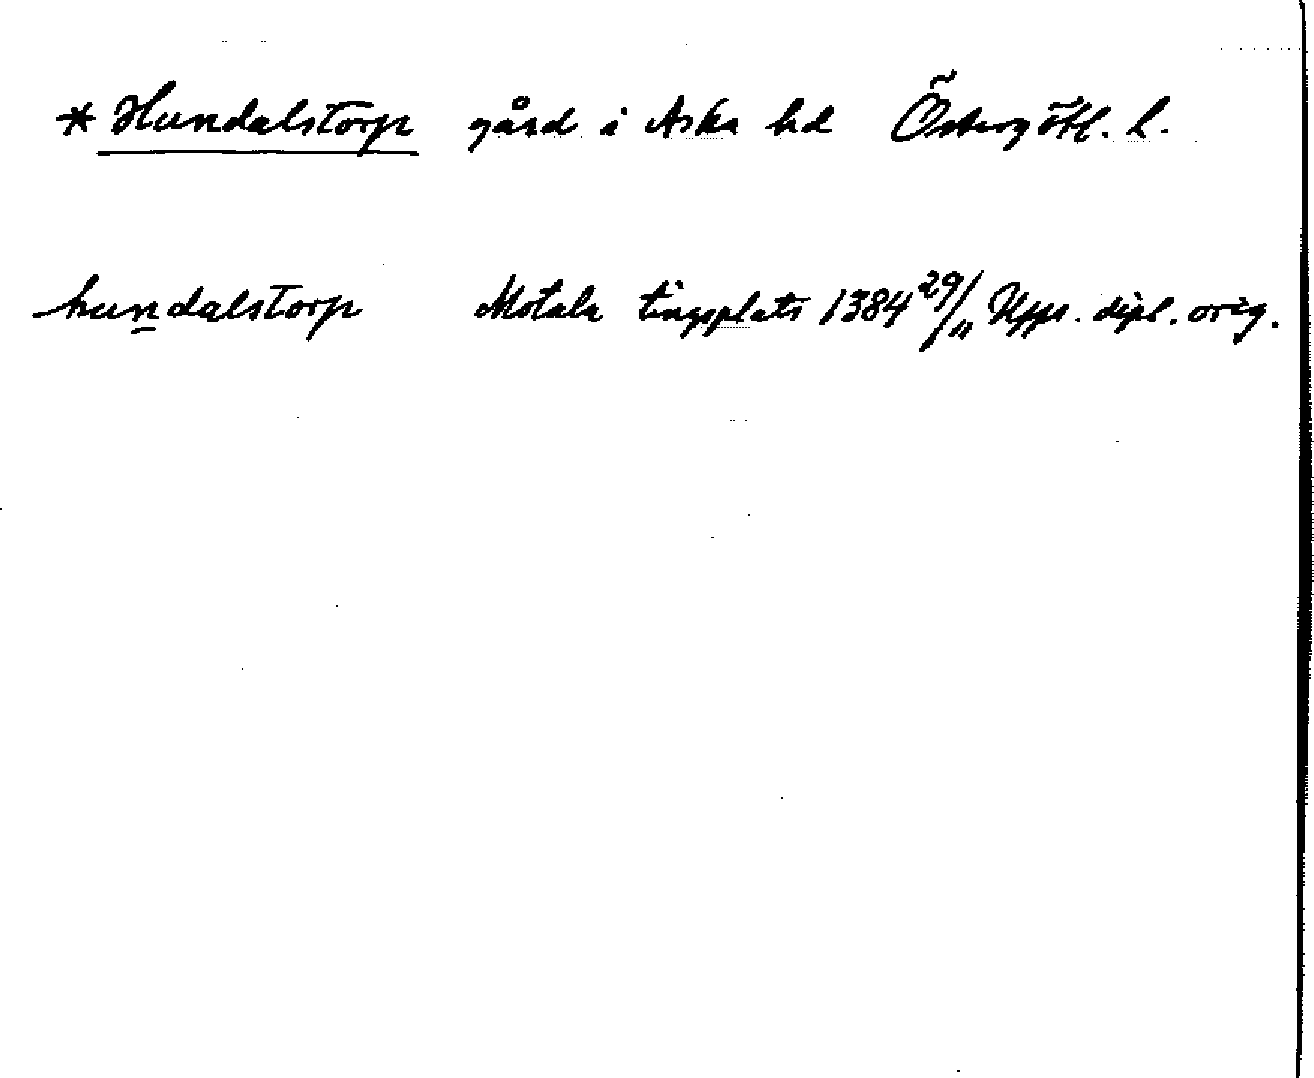 * Hundalstorp gård i Aska hd Östergötl. l.
hundalstorp Motala tingsplats 1384 29/11 Upps. dipl. orig.